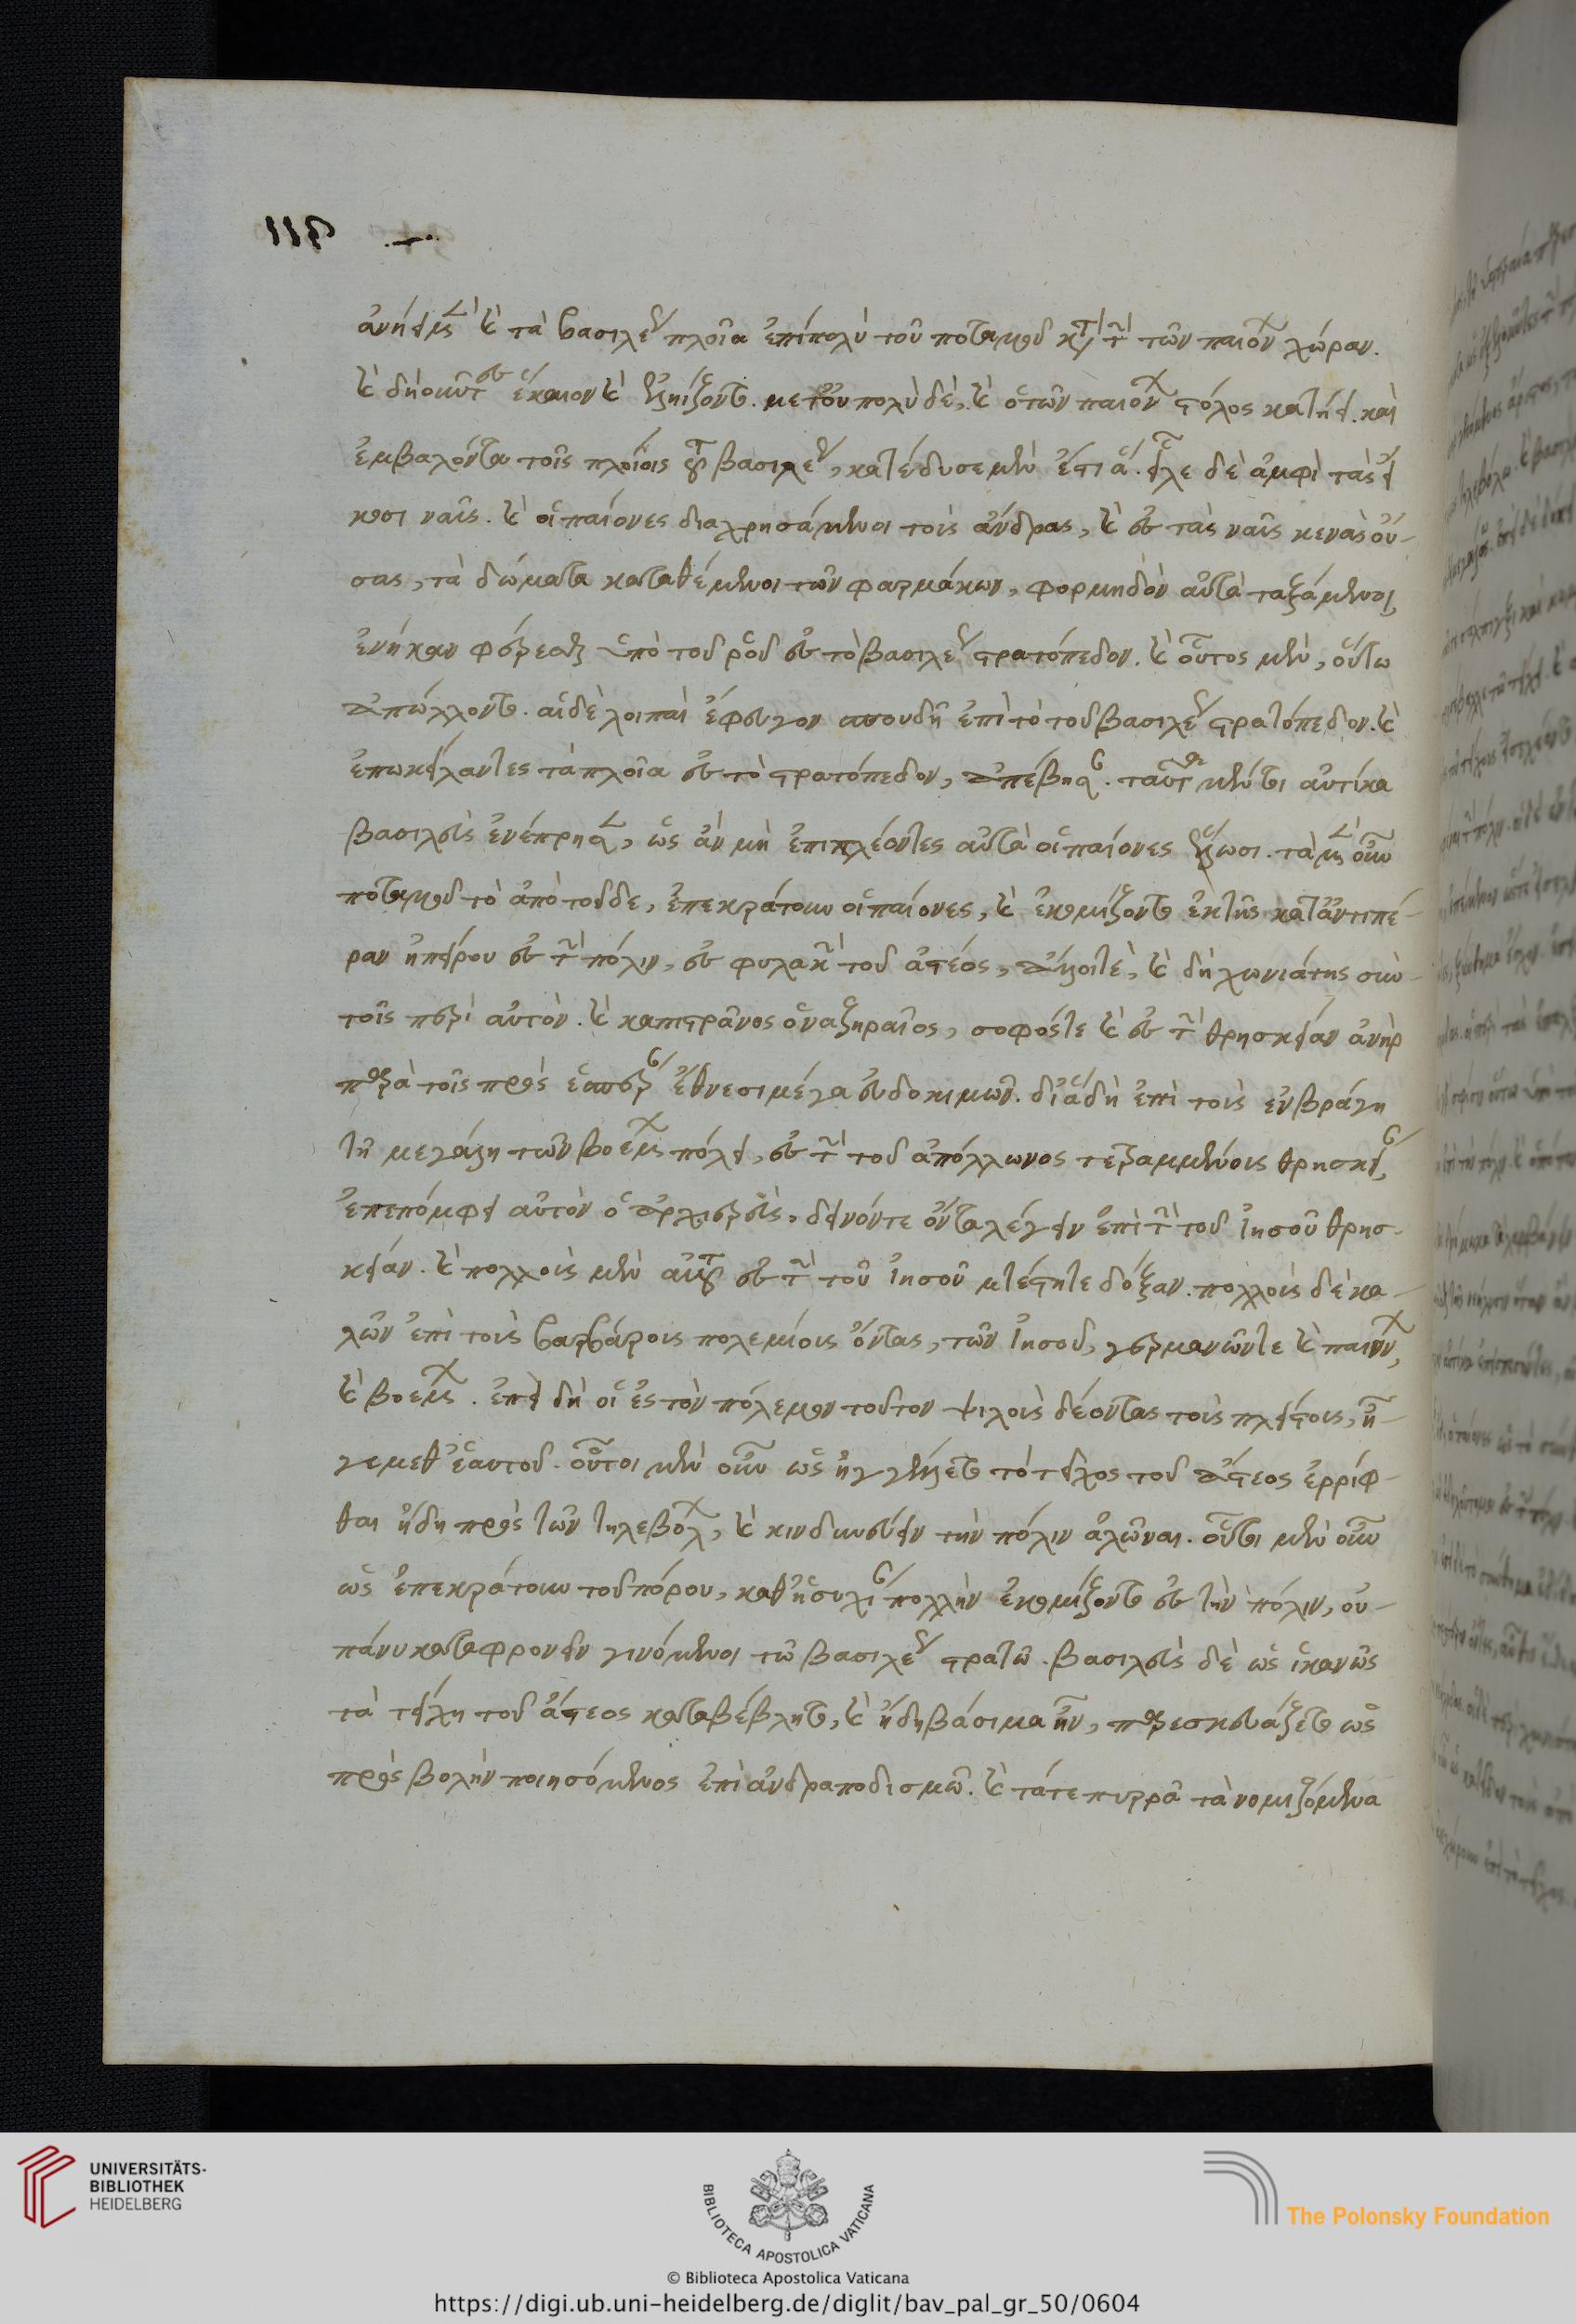 ἀνήει μὲν καὶ τὰ βασιλέως πλοῖα ἐπὶ πολὺ τοῦ ποταμοῦ κατὰ τὴν τῶν παιόνων χώραν.
καὶ δηιοῦντες ἔκαιον καὶ ἐληίζοντο. μετ' οὐ πολὺ δὲ, καὶ ὁ τῶν παιόνων στόλος κατήει. καὶ
ἐμβαλόντα τοῖς πλοίοις τοῦ βασιλέως, κατέδυσε μὲν ἔστι ἅ. εἷλε δὲ ἀμφὶ τὰς εἴ
κοσι ναῦς. καὶ οἱ παίονες διαχρησάμενοι τοὺς ἄνδρας, καὶ ἐς τὰς ναῦς κενὰς οὔ-
σας, τὰ σώματα καταθέμενοι τῶν φαρμάκων, φορμηδὸν αὐτὰ ταξάμενοι,
ἐνῆκαν φέρεσθαι ὑπὸ τοῦ ῥοῦ ἐς τὸ βασιλέως στρατόπεδον. καὶ οὗτος μὲν, οὕτω
ἀπώλλοντο. αἱ δὲ λοιπαὶ ἔφευγον σπουδῇ ἐπὶ τὸ τοῦ βασιλέως στρατόπεδον. καὶ
ἐπωκείλαντες τὰ πλοῖα ἐς τὸ στρατόπεδον, ἀπέβησαν. ταύτας μέντοι αὐτίκα
βασιλεὺς ἐνέπρησεν, ὡς ἂν μὴ ἐπιπλέοντες αὐτὰ οἱ παίονες ἕλωσι. τὰ μὲν οὖν
ποταμοῦ τὸ ἀπὸ τοῦδε, ἐπεκράτουν οἱ παίονες, καὶ ἐκομίζοντο ἐκ τῆς κατ' ἀντιπέ-
ραν ἠπείρου ἐς τὴν πόλιν, ἐς φυλακὴν τοῦ ἄστεος, καὶ δὴ χωνιάτης σὺν
τοῖς περὶ αὐτὸν. καὶ καπιστράνος ὁ ναζηραῖος, σοφός τε καὶ ἐς τὴν θρησκείαν ἀνὴρ
παρὰ τοῖς πρὸς ἑσπέραν ἔθνεσι μέγα εὐδοκιμῶν. δι' ἃ δὴ ἐπὶ τοὺς ἐν βράγη
τῇ μεγάλῃ τῶν βοέμων πόλει, ἐς τὴν τοῦ ἀπόλλωνος τετραμμένους θρησκείαν,
ἐπεπόμφει αὐτὸν ὁ ἀρχιερεὺς, δεινόν τε ὄντα λέγειν ἐπὶ τὴν τοῦ ἰησοῦ θρησ-
κείαν. καὶ πολλοὺς μὲν αὐτοῦ ἐς τὴν τοῦ ἰησοῦ μετέστησε δόξαν. πολλοὺς δὲ κα-
λῶν ἐπὶ τοὺς βαρβάρους πολεμίους ὄντας, τῶν ἰησοῦ, γερμανῶν τε καὶ παιόνων,
καὶ βοέμων. ἐπεὶ δὴ οἱ ἐς τὸν πόλεμον τοῦτον ψιλοὺς δέοντας τοὺς πλείστους, ἦ-
γε μεθ' ἑαυτοῦ. οὗτοι μὲν οὖν ὡς ἠγγέλλετο τὸ τεῖχος τοῦ ἄστεος ἐρρίφ-
θαι ἤδη πρὸς τῶν τηλεβόλων, καὶ κινδυνεύειν τὴν πόλιν ἁλῶναι. οὗτοι μὲν οὖν
ὡς ἐπεκράτουν τοῦ πόρου, καθ' ἡσυχίαν πολλὴν ἐκομίζοντο ἐς τὴν πόλιν, οὐ-
πάνυ καταφρονεῖν γινόμενοι τῶ βασιλέως στρατῶ. βασιλεὺς δὲ ὡς ἱκανῶς
τὰ τείχη τοῦ ἄστεος καταβέβλητο, καὶ ἤδη βάσιμα ἦν, παρεσκευάζετο ὡς
προσβολὴν ποιησόμενος ἐπὶ ἀνδραποδισμῶ. καὶ τά τε πυρρᾶ τὰ νομιζόμενα
UNIVERSITÄTS-
BIBLIOTHEK
HEIDELBERG
BIBLIOTECA APOSTOLICA VATICANA
The Polonsky Foundation
© Biblioteca Apostolica Vaticana
https://digi.ub.uni-heidelberg.de/diglit/bav_pal_gr_50/0604